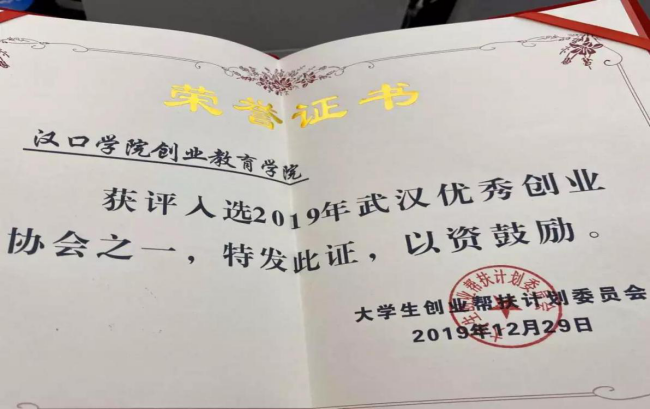 荣誉证书
汉口学院创业教育学院
获评入选2019年武汉优秀创业
协会之一，特发此证，以资鼓励。
大学生创业帮扶计划委员会
2019年12月29日
大学生创业帮扶计划委员会